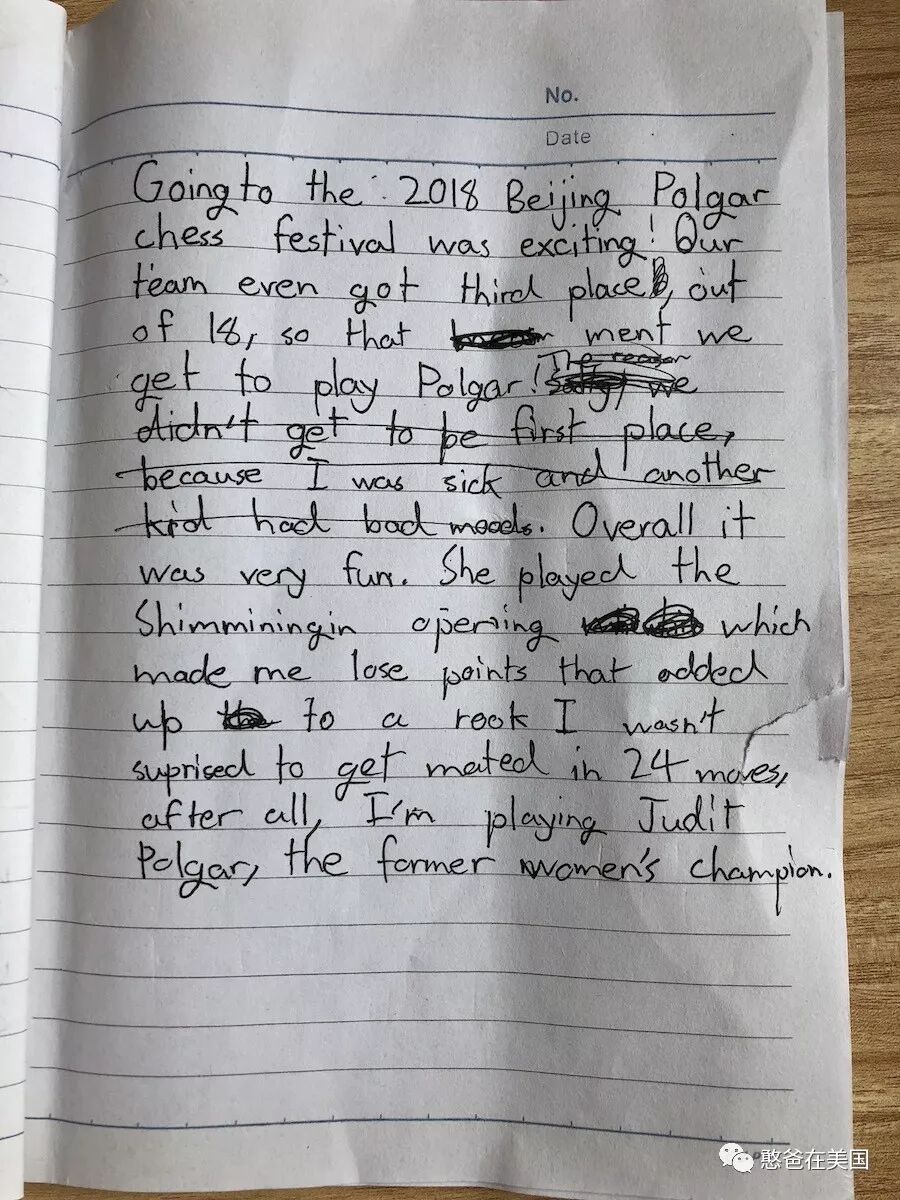 No.
Date
Going to the 2018 Beijing Polgar
chess festival was exciting! Our
team even got third place, out
of 18, so that ment we
get to play Polgar! The reason we
didn't get to be first place,
because I was sick and another
kid had bad moods. Overall it
was very fun. She played the
Shimminingin opening which
made me lose points that added
up to a rook I wasn't
suprised to get mated in 24 moves,
after all, I'm playing Judit
Polgar, the former women's champion.
憨爸在美国